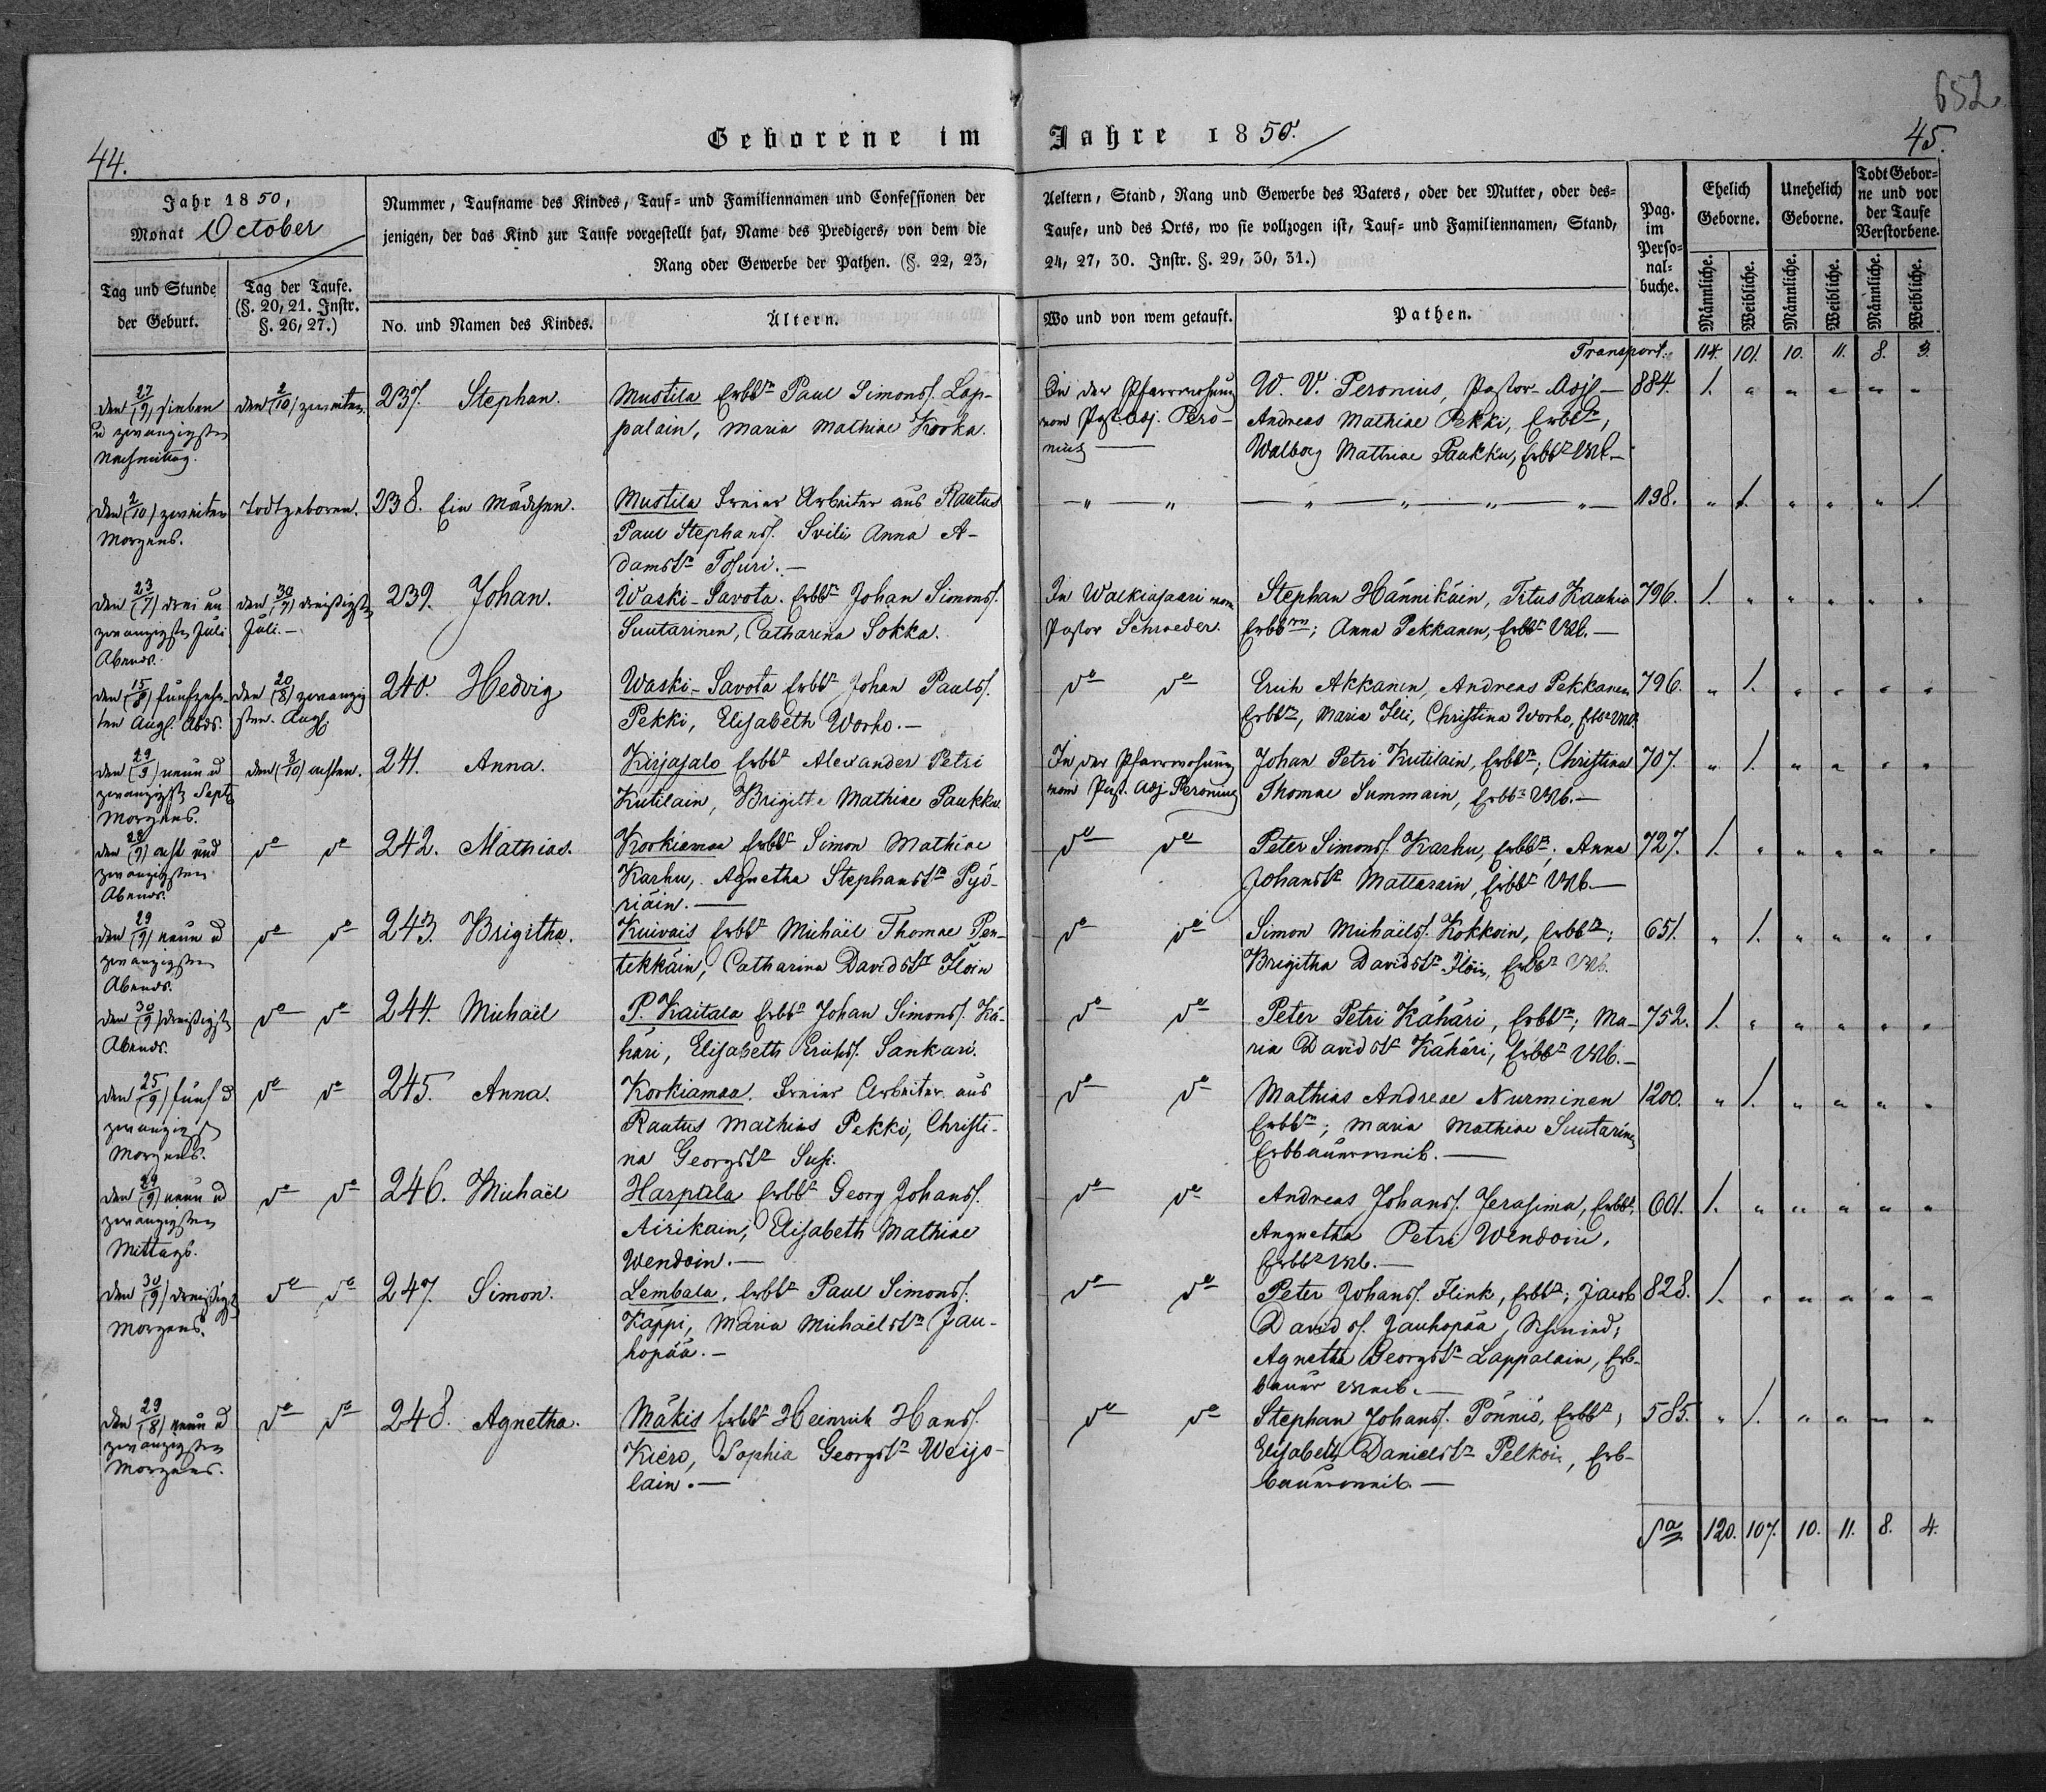 652
44.
Geborene im Jahre 1850.
45.
Jahr 1850,
Monat October
Tag und Stunde
der Geburt.
Tag der Taufe.
(§. 20, 21. Instr.
§. 26, 27.)
Nummer, Taufname des Kindes, Tauf- und Familiennamen und Confessionen der
jenigen, der das Kind zur Taufe vorgestellt hat, Name des Predigers, von dem die
Rang oder Gewerbe der Pathen. (§. 22, 23,
No. und Namen des Kindes.
Ältern.
Aeltern, Stand, Rang und Gewerbe des Vaters, oder der Mutter, oder des-
Taufe, und des Orts, wo sie vollzogen ist, Tauf- und Familiennamen, Stand,
24, 27, 30. Instr. §. 29, 30, 31.)
Wo und von wem getauft.
Pathen.
Pag.
im
Perso-
nal-
buche.
Ehelich
Geborne.
Unehelich
Geborne.
Todt Gebor-
ne und vor
der Taufe
Verstorbene.
Männliche. Weibliche. Männliche. Weibliche. Männliche. Weibliche.
Transport. 114. 101. 10. 11. 8. 3.
den (27/9) sieben
u zwanzigsten
Nachmittag.
den (2/10) zweiten
237. Stephan.
Mustila Erbbr Paul Simonss. Lap-
palain, Maria Mathiae Korka.
In der Pfarrwohung
vom Past. Adj. Pero-
nius
W. V. Peronius, Pastor-Adj
Andreas Mathiae Pekki, Erbbr,
Walborg Mathiae Paukku, Erbbr Wb.
884. 1. " " " " "
den (2/10) zweiten
Morgens.
Todtgeboren.
238. Ein Mädchen.
Mustila Freier Arbeiter aus Rautus
Paul Stephanss. Anna A-
damstr
" "
" " " "
1198. " 1. " " " 1.
den (23/7) drei un
zwanzigsten Juli
Abends.
den (30/7) dreissigsten
Juli.
239. Johan.
Waski-Savota. Erbbr Johan Simonss.
Suutarinen, Catharina Sokka.
In Walkiasaari vom
Pastor Schroeder.
Stephan Hännikäin, Titus Kauhia
Erbbrn; Anna Pekkanen, Erbbr Wb.
796. 1. " " " " "
den (15/8) funfzehn-
ten Aug. Abds.
den (20/8) zwanzig
sten. Aug.
240. Hedvig
Waski-Savota Erbbr Johan Paulss.
Pekki, Elisabeth Worho.
do do
Erich Akkanen, Andreas Pekkanen
Erbbrn, Maria Christina Worho, Erbbr Wb.
796. " 1. " " " "
den (29/9) neun u
zwanzigst Sept
Morgens.
den (8/10) achten.
241. Anna.
Kirjasalo Erbbr Alexander Petri
Kutilain, Brigitha Mathiae Paukku
In der Pfarrwohung
vom Past. Adj Peronius
Johan Petri Kutilain, Erbbr; Christina
Thomae Summain, Erbbr Wb.
707. " 1. " " " "
den (28/9) acht und
zwanzigsten
Abends.
do do
242. Mathias.
Korkiamaa Erbbr Simon Mathiae
Karhu, Agnetha Stephanstr Pyö-
riäin.
do do
Peter Simonss. Karhu, Erbbr; Anna
Johanstr Mattarain, Erbbr Wb.
727. 1. " " " " "
den (29/9) neun u
zwanzigsten
Abends.
do do
243. Brigitha.
Kuivais Erbbr Michaël Thomae Pen-
tekkäin, Catharina Davidstr Ilöin
do do
Simon Michaëlss. Kokkoin, Erbbr;
Brigitha Davidstr Ilöin, Erbbr Wb.
651. " 1. " " " "
den (30/9) dreissigsten
Abends.
do do
244. Michaël
P. Kaitala Erbbr Johan Simonss. Kä-
häri, Elisabeth Erichss. Sankari.
do do
Peter Petri Kähäri, Erbbr; Ma-
ria Davidstr Kähäri, Erbbr Wb.
752. 1. " " " " "
den (25/9) fünf u
zwanzigsten
Morgens.
do do
245. Anna.
Korkiamaa. Freier Arbeiter aus
Rautus Mathias Pekki, Christi-
na Georgstr Susi.
do do
Mathias Andreae Nurminen
Erbbr; Maria Mathiae Suutarinen
Erbbauernweib.
1200. " 1. " " " "
den (29/9) neun u
zwanzigsten
Mittags.
do do
246. Michaël
Harpala Erbbr Georg Johanss.
Airikain, Elisabeth Mathiae
Wendoin.
do do
Andreas Johanss. Jerasima, Erbbr.
Angnetha Petri Wendoin,
Erbbr Wb.
601. 1. " " " " "
den (30/9) dreissigst
Morgens.
do do
247. Simon.
Lembala, Erbbr Paul Simonss.
Käppi, Maria Michaëlstr Jau-
hopää.
do do
Peter Johanss. Flink, Erbbr; Jacob
Davidss. Jauhopää, Schmied;
Agnetha Georgstr Lappalain, Erb-
bauer Weib.
828. 1. " " " " "
den (29/8) neun u
zwanzigsten
Morgens.
do do
248. Agnetha.
Mäkis Erbbr Heinrich Hanss.
Kiero, Sophia Georgstr Weijo-
lain.
do do
Stephan Johanss. Pönniö, Erbbr,
Elisabeth Danielstr Pelkoin, Erb-
bauernweib.
585. " 1. " " " "
Sa 120. 107. 10. 11. 8. 4.